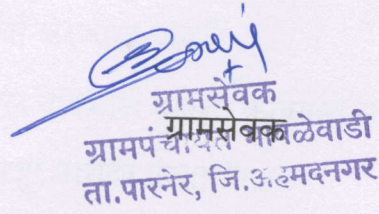 ग्रामसेवक
ग्रामसेवक
ग्रामपंचायत
ता.पारनेर, जि.अहमदनगर